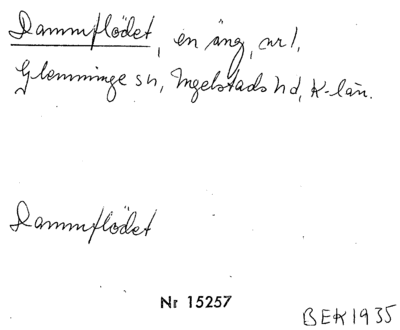 Dammflödet, en äng, nr 1,
Glemminge sn, Ingelstads hd, K-län.
Dammflödet
Nr 15257
BEK 1935